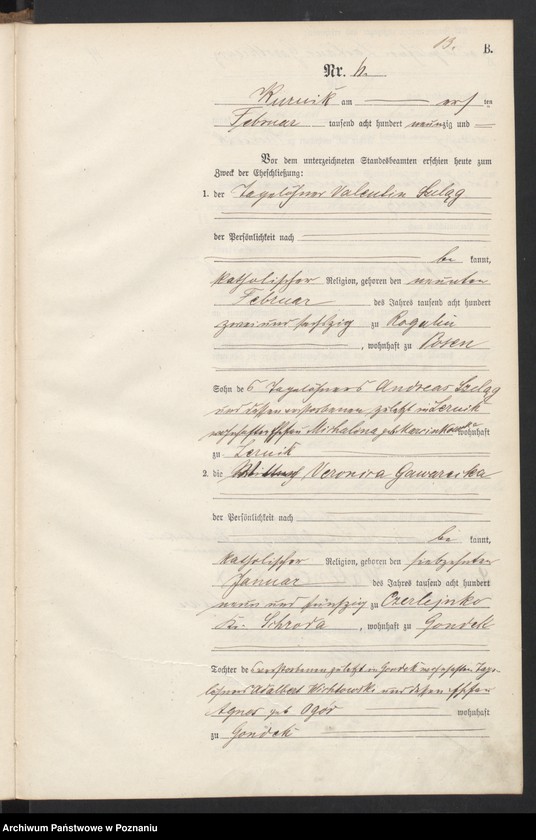 13.
B.
Nr. 6.
Kurnik am ersten
Februar tausend acht hundert neunzig und
Vor dem unterzeichneten Standesbeamten erschien heute zum
Zweck der Eheschließung:
1. der Tagelöhner Valentin Szeląg
der Persönlichkeit nach
be kannt,
katholischer Religion, geboren den neunten
Februar des Jahres tausend acht hundert
zwei und sechszig zu Rogalin
, wohnhaft zu Posen
Sohn des Tagelöhners Andreas Szeląg
und dessen verstorbenen zuletzt in
Michalina geb. wohnhaft
zu
2. die Veronica Gawarecka
der Persönlichkeit nach
be kannt,
katholischer Religion, geboren den siebzehnten
Januar des Jahres tausend acht hundert
neun und fünfzig zu Czerlejnko
Kr. Schroda, wohnhaft zu Gondek
Tochter des verstorbenen zuletzt in Gondek wohnhaften Tage-
löhners Adalbert und dessen Ehefrau
Agnes geb. wohnhaft
zu Gondek
Archiwum Państwowe w Poznaniu